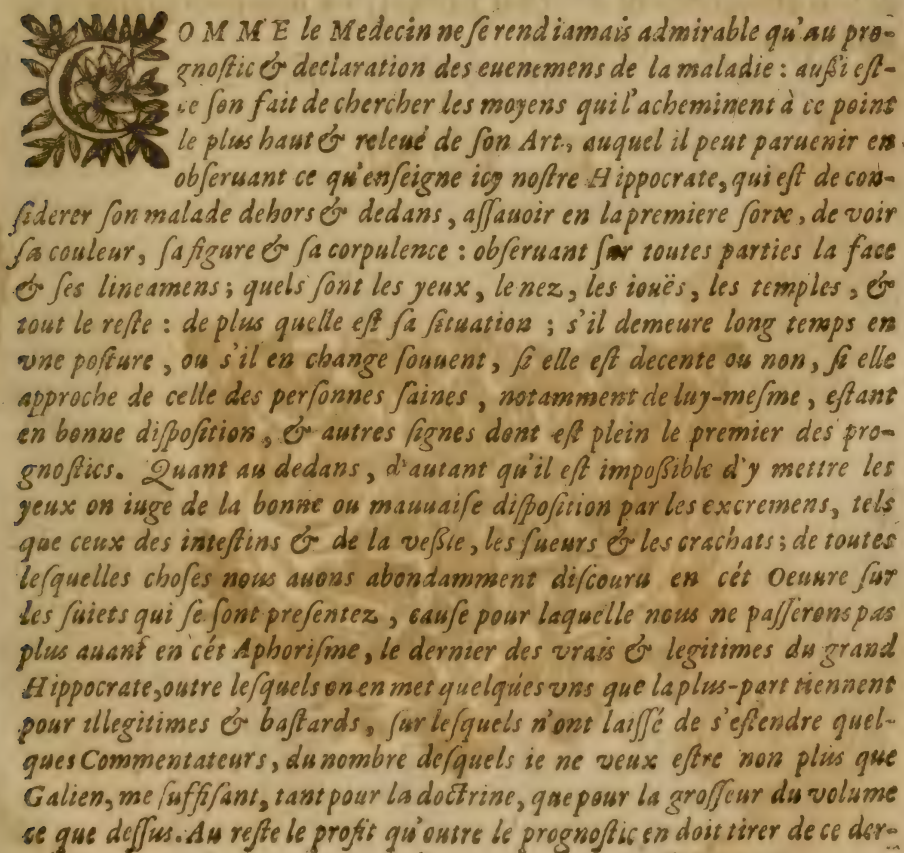 COMME le Medecin ne ſe rend iamais admirable qu'au pro-
gnoſtic & declaration des euenemens de la maladie : auſſi eſt-
ce ſon fait de chercher les moyens qui l'acheminent à ce point
le plus haut & releué de ſon Art, auquel il peut paruenir en
obſeruant ce qu'enſeigne icy noſtre Hippocrate, qui eſt de con-
ſiderer ſon malade dehors & dedans, aſſauoir en la premiere ſorte, de voir
ſa couleur, ſa figure & ſa corpulence : obſeruant ſur toutes parties la face
& ſes lineamens ; quels ſont les yeux, le nez, les iouës, les temples, &
tout le reſte : de plus quelle eſt ſa ſituation ; s'il demeure long temps en
vne poſture, ou s'il en change ſouuent, ſi elle eſt decente ou non, ſi elle
approche de celle des perſonnes ſaines, notamment de luy-meſme, eſtant
en bonne diſpoſition, & autres ſignes dont eſt plein le premier des pro-
gnoſtics. Quant au dedans, d'autant qu'il eſt impoſſible d'y mettre les
yeux on iuge de la bonne ou mauuaiſe diſpoſition par les excremens, tels
que ceux des inteſtins & de la veſſie, les ſueurs & les crachats ; de toutes
leſquelles choſes nous auons abondamment diſcouru en cét Oeuure ſur
les ſuiets qui ſe ſont preſentez, cauſe pour laquelle nous ne paſſerons pas
plus auant en cét Aphoriſme, le dernier des vrais & legitimes du grand
Hippocrate, outre leſquels on en met quelques vns que la plus-part tiennent
pour illegitimes & baſtards, ſur leſquels n'ont laiſſé de s'eſtendre quel-
ques Commentateurs, du nombre deſquels ie ne veux eſtre non plus que
Galien, me ſuffiſant, tant pour la doctrine, que pour la groſſeur du volume
ce que deſſus. Au reſte le profit qu'outre le prognoſtic on doit tirer de ce der-